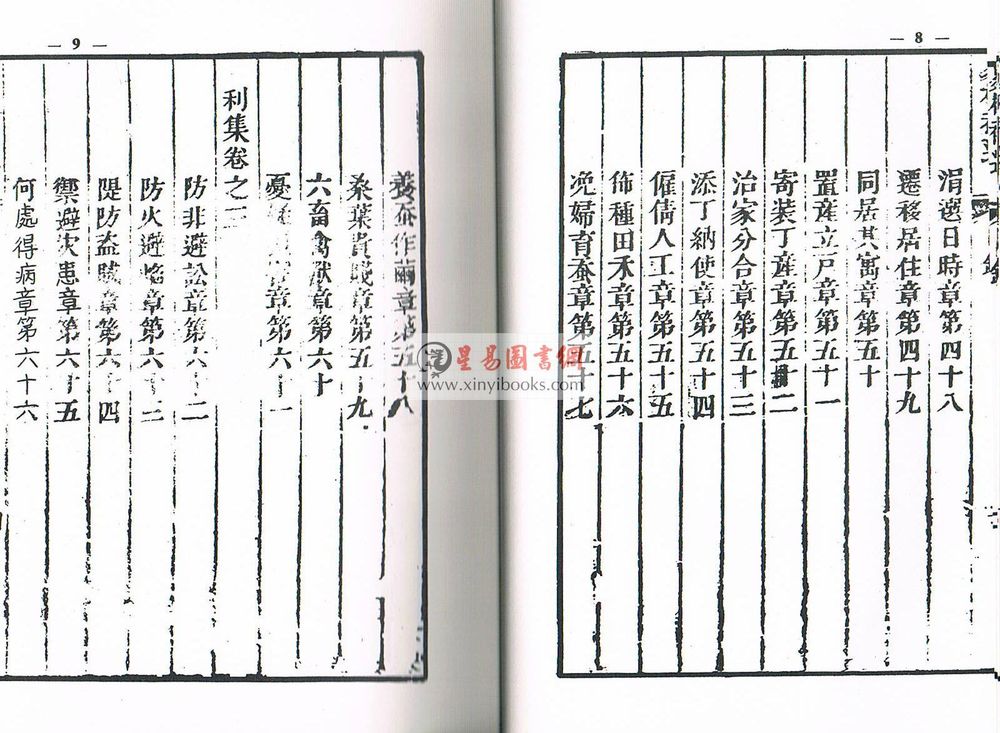 — 8 —
涓選日時章第四十八
遷移居住章第四十九
同居其寓章第五十
置産立戸章第五十一
寄装丁産章第五十二
治家分合章第五十三
添丁納使章第五十四
僱倩人工章第五十五
佈種田禾章第五十六
娩婦育蚕章第五十七
— 9 —
養蚕作繭章第五十八
桒葉貴賤章第五十九
六畜禽獸章第六十
憂 章第六十一
利集卷之三
防非避訟章第六十二
防火避焰章第六十三
隄防盗賊章第六十四
禦避灾患章第六十五
何處得病章第六十六
星易圖書網
www.xinyibooks.com